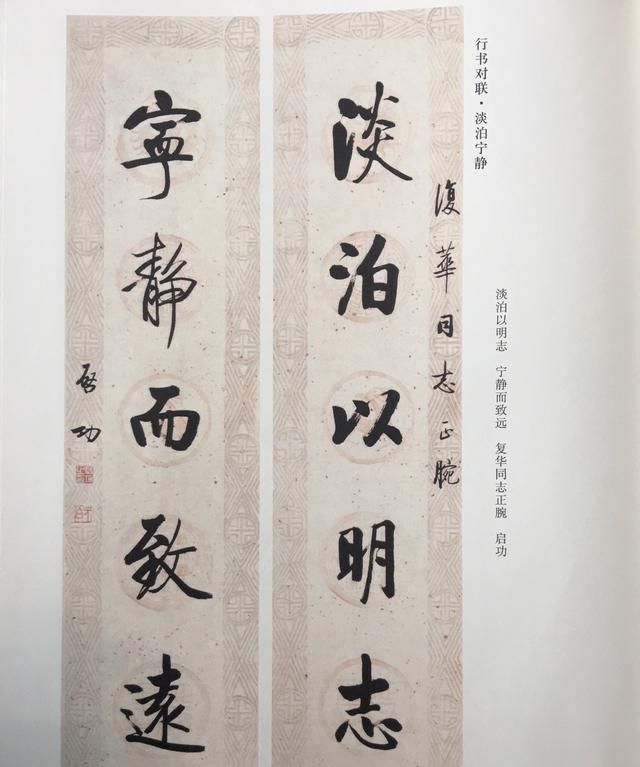 行书对联·淡泊宁静
淡泊以明志 宁静而致远 复华同志正腕 启功
復華同志正腕
淡泊以明志
寧静而致遠
啓功